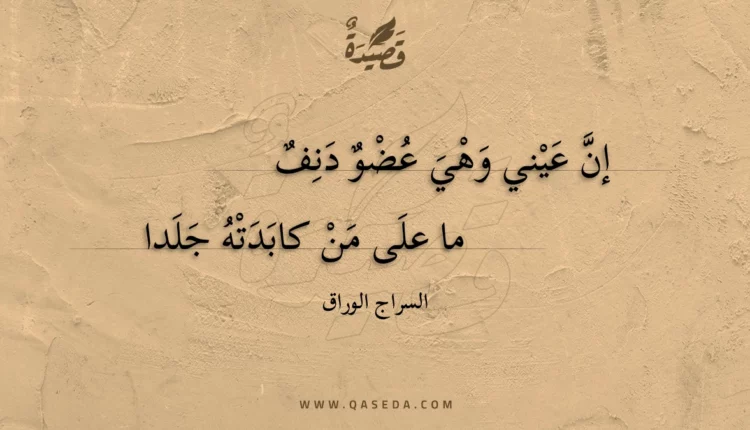 قَصِيدَةٌ
إنَّ عَيْني وَهْيَ عُضْوٌ دَنِفٌ
ما علَى مَنْ كابَدَتْهُ جَلَدا
السراج الوراق
WWW.QASEDA.COM